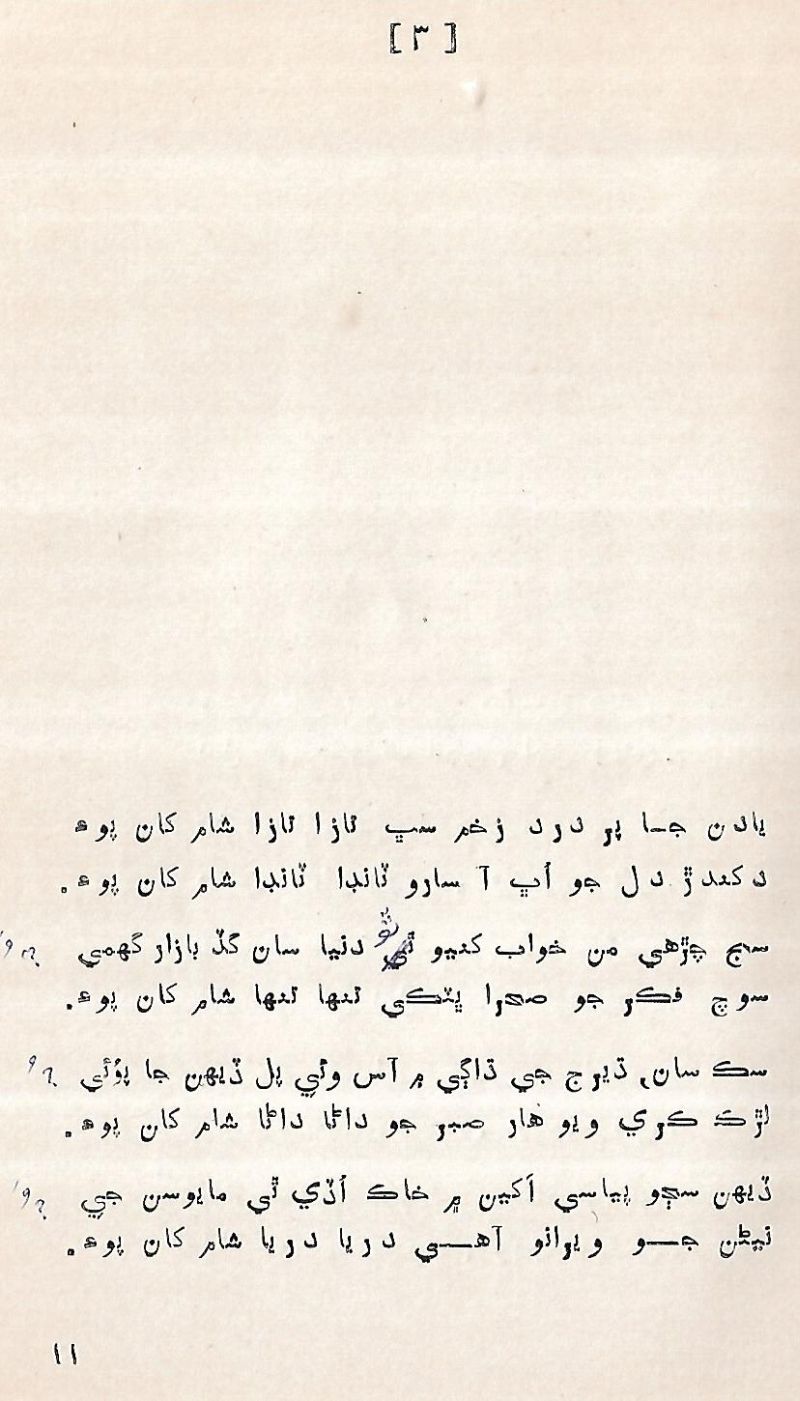 [ ٣ ]
يادن جا پر درد زخم سڀ تازا تازا شام کان پوءِ
دکندڙ دل جو اُڀ آ سارو ٽانڊا ٽانڊا شام کان پوءِ.
سڄ چڙهي من خواب کنيو ٿو دنيا سان گڏ بازار گهمي
سوچ فڪر جو صحرا ڀٽڪي تنها تنها شام کان پوءِ.
سڪ سان، ڌيرج جي ڌاڳي ۾ آس وٺي پل ڏيهن جا پوئي
لڙڪ ڪري ويو هار صبر جو داڻا داڻا شام کان پوءِ.
ڏيهن سڄو پياسي اکين ۾ خاڪ اُڏي ٿي مايوسن جي
نيڻن جو ويرانو آهي دريا دريا شام کان پوءِ.
١١